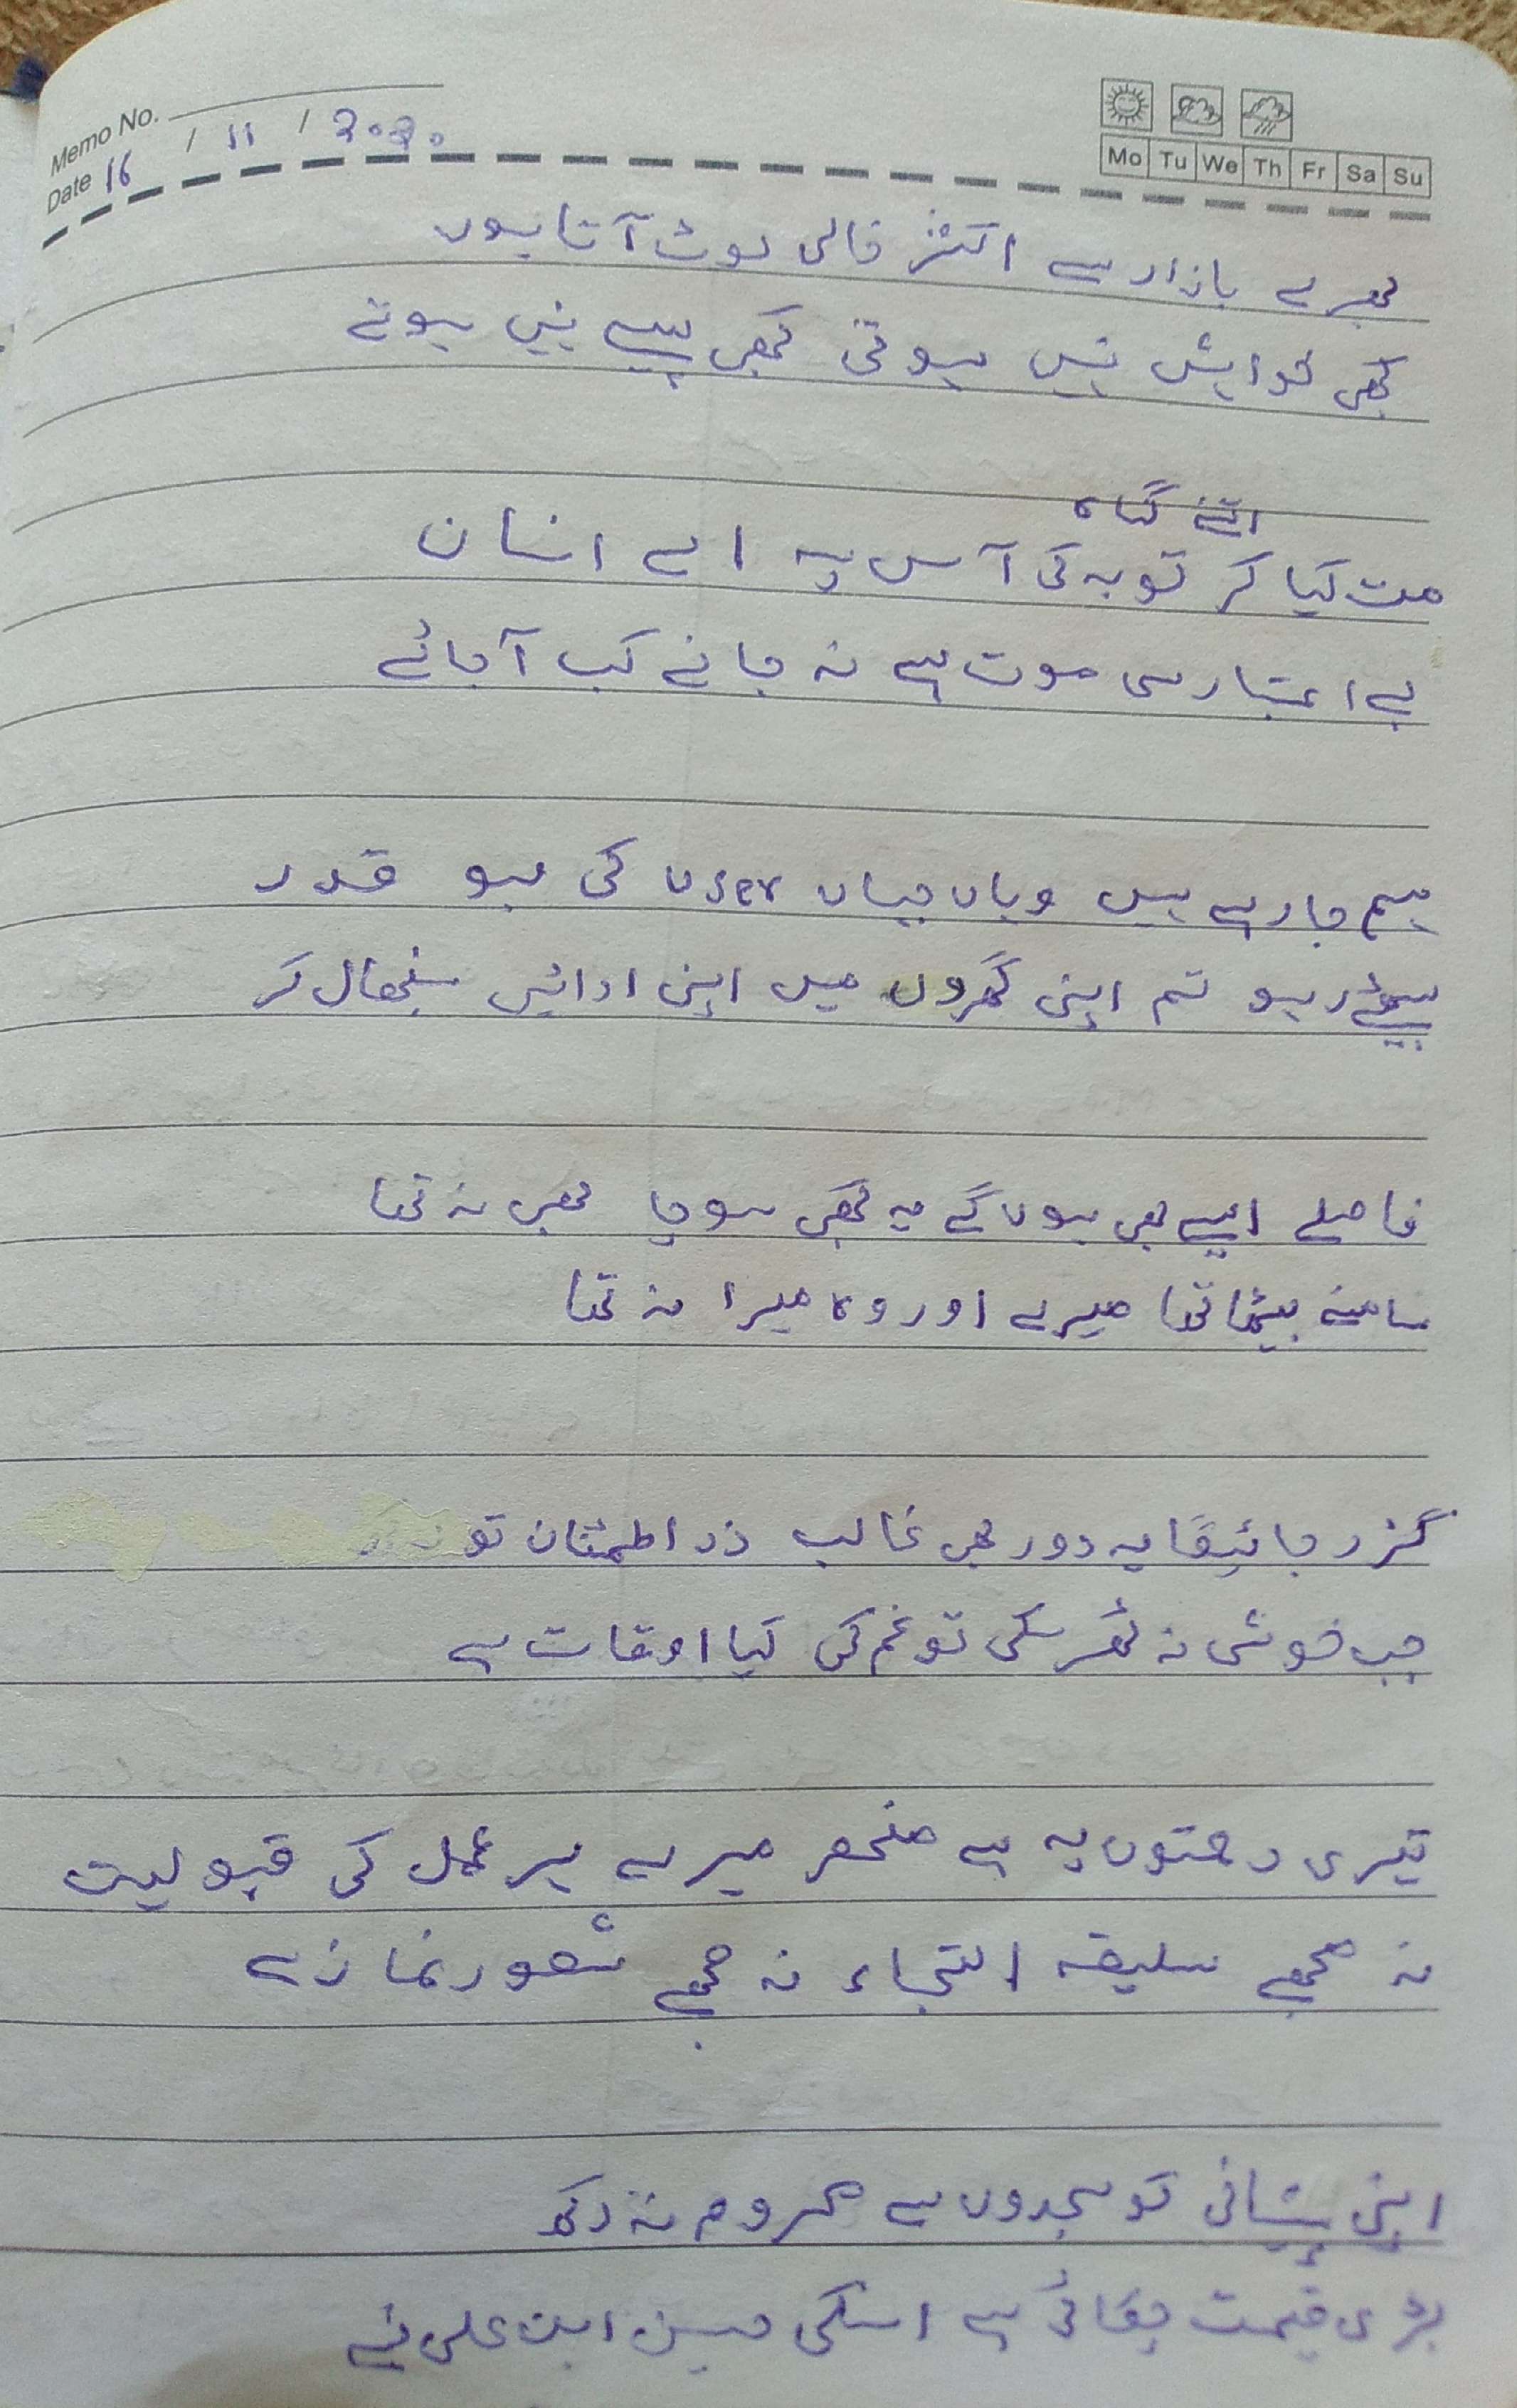 Memo No.
Date 16 / 11 / 2020
Mo Tu We Th Fr Sa Su
بھرے بازار سے اکثر خالی لوٹ آتا ہوں
کبھی خواہش نہیں ہوتی کبھی پیسے نہیں ہوتے
اتنے گناہ
مت کیا کر توبہ کی آس پہ اے انسان
بے اعتبار سی موت ہے نہ جانے کب آجائے
ہم جارہے ہیں وہاں جہاں user کی ہو قدر
بیٹھے رہو تم اپنی گھروں میں اپنی ادائیں سنبھال کر
فاصلے ایسے بھی ہوں گے یہ کبھی سوچا بھی نہ تھا
سامنے بیٹھا تھا میرے اور وہ میرا نہ تھا
گزر جائیگا یہ دور بھی غالب ذر اطمئنان تو
جب خوشی نہ ٹھر سکی تو غم کی کیا اوقات ہے
تیری رحمتوں پہ ہے منحصر میرے ہر عمل کی قبولیت
نہ مجھے سلیقہ التجاء نہ مجھے شعور نماز ہے
اپنی پیشانی کو سجدوں سے محروم نہ رکھ
بڑی قیمت چکائی ہے اسکی حسین ابن علی نے